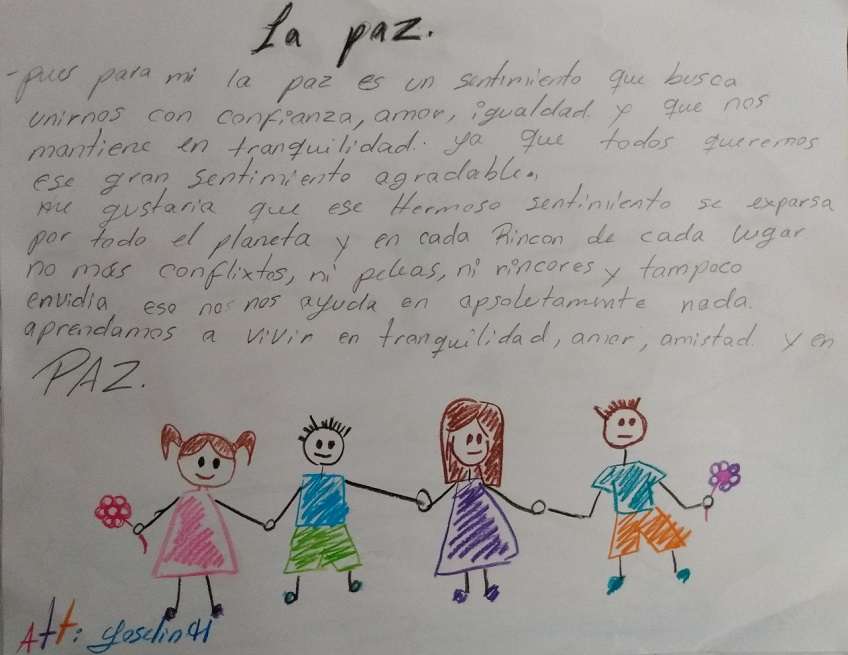 La paz.
-pues para mi la paz es un sentimiento que busca
unirnos con confianza, amor, igualdad y que nos
mantiene en tranquilidad. ya que todos queremos
ese gran sentimiento agradable.
Me gustaria que ese Hermoso sentimiento se exparsa
por todo el planeta y en cada Rincon de cada lugar
no más conflixtos, ni peleas, ni rincores y tampoco
envidia eso no nos ayuda en apsoletamente nada.
aprendamos a vivir en tranquilidad, amor, amistad y en
PAZ.
Att: Yoselin